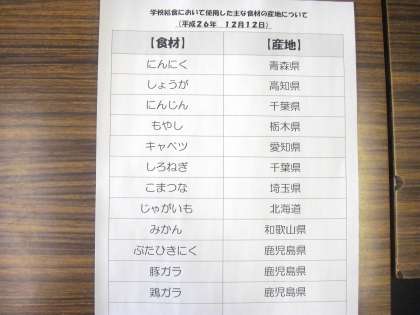 学校給食において使用した主な食材の産地について
(平成26年 12月12日)
【食材】 【産地】
にんにく 青森県
しょうが 高知県
にんじん 千葉県
もやし 栃木県
キャベツ 愛知県
しろねぎ 千葉県
こまつな 埼玉県
じゃがいも 北海道
みかん 和歌山県
ぶたひきにく 鹿児島県
豚ガラ 鹿児島県
鶏ガラ 鹿児島県